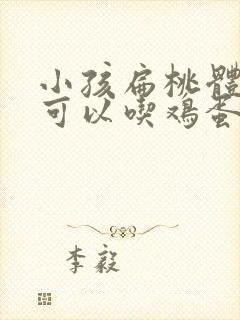 小孩扁桃體
可以喫鸡蛋
李毅